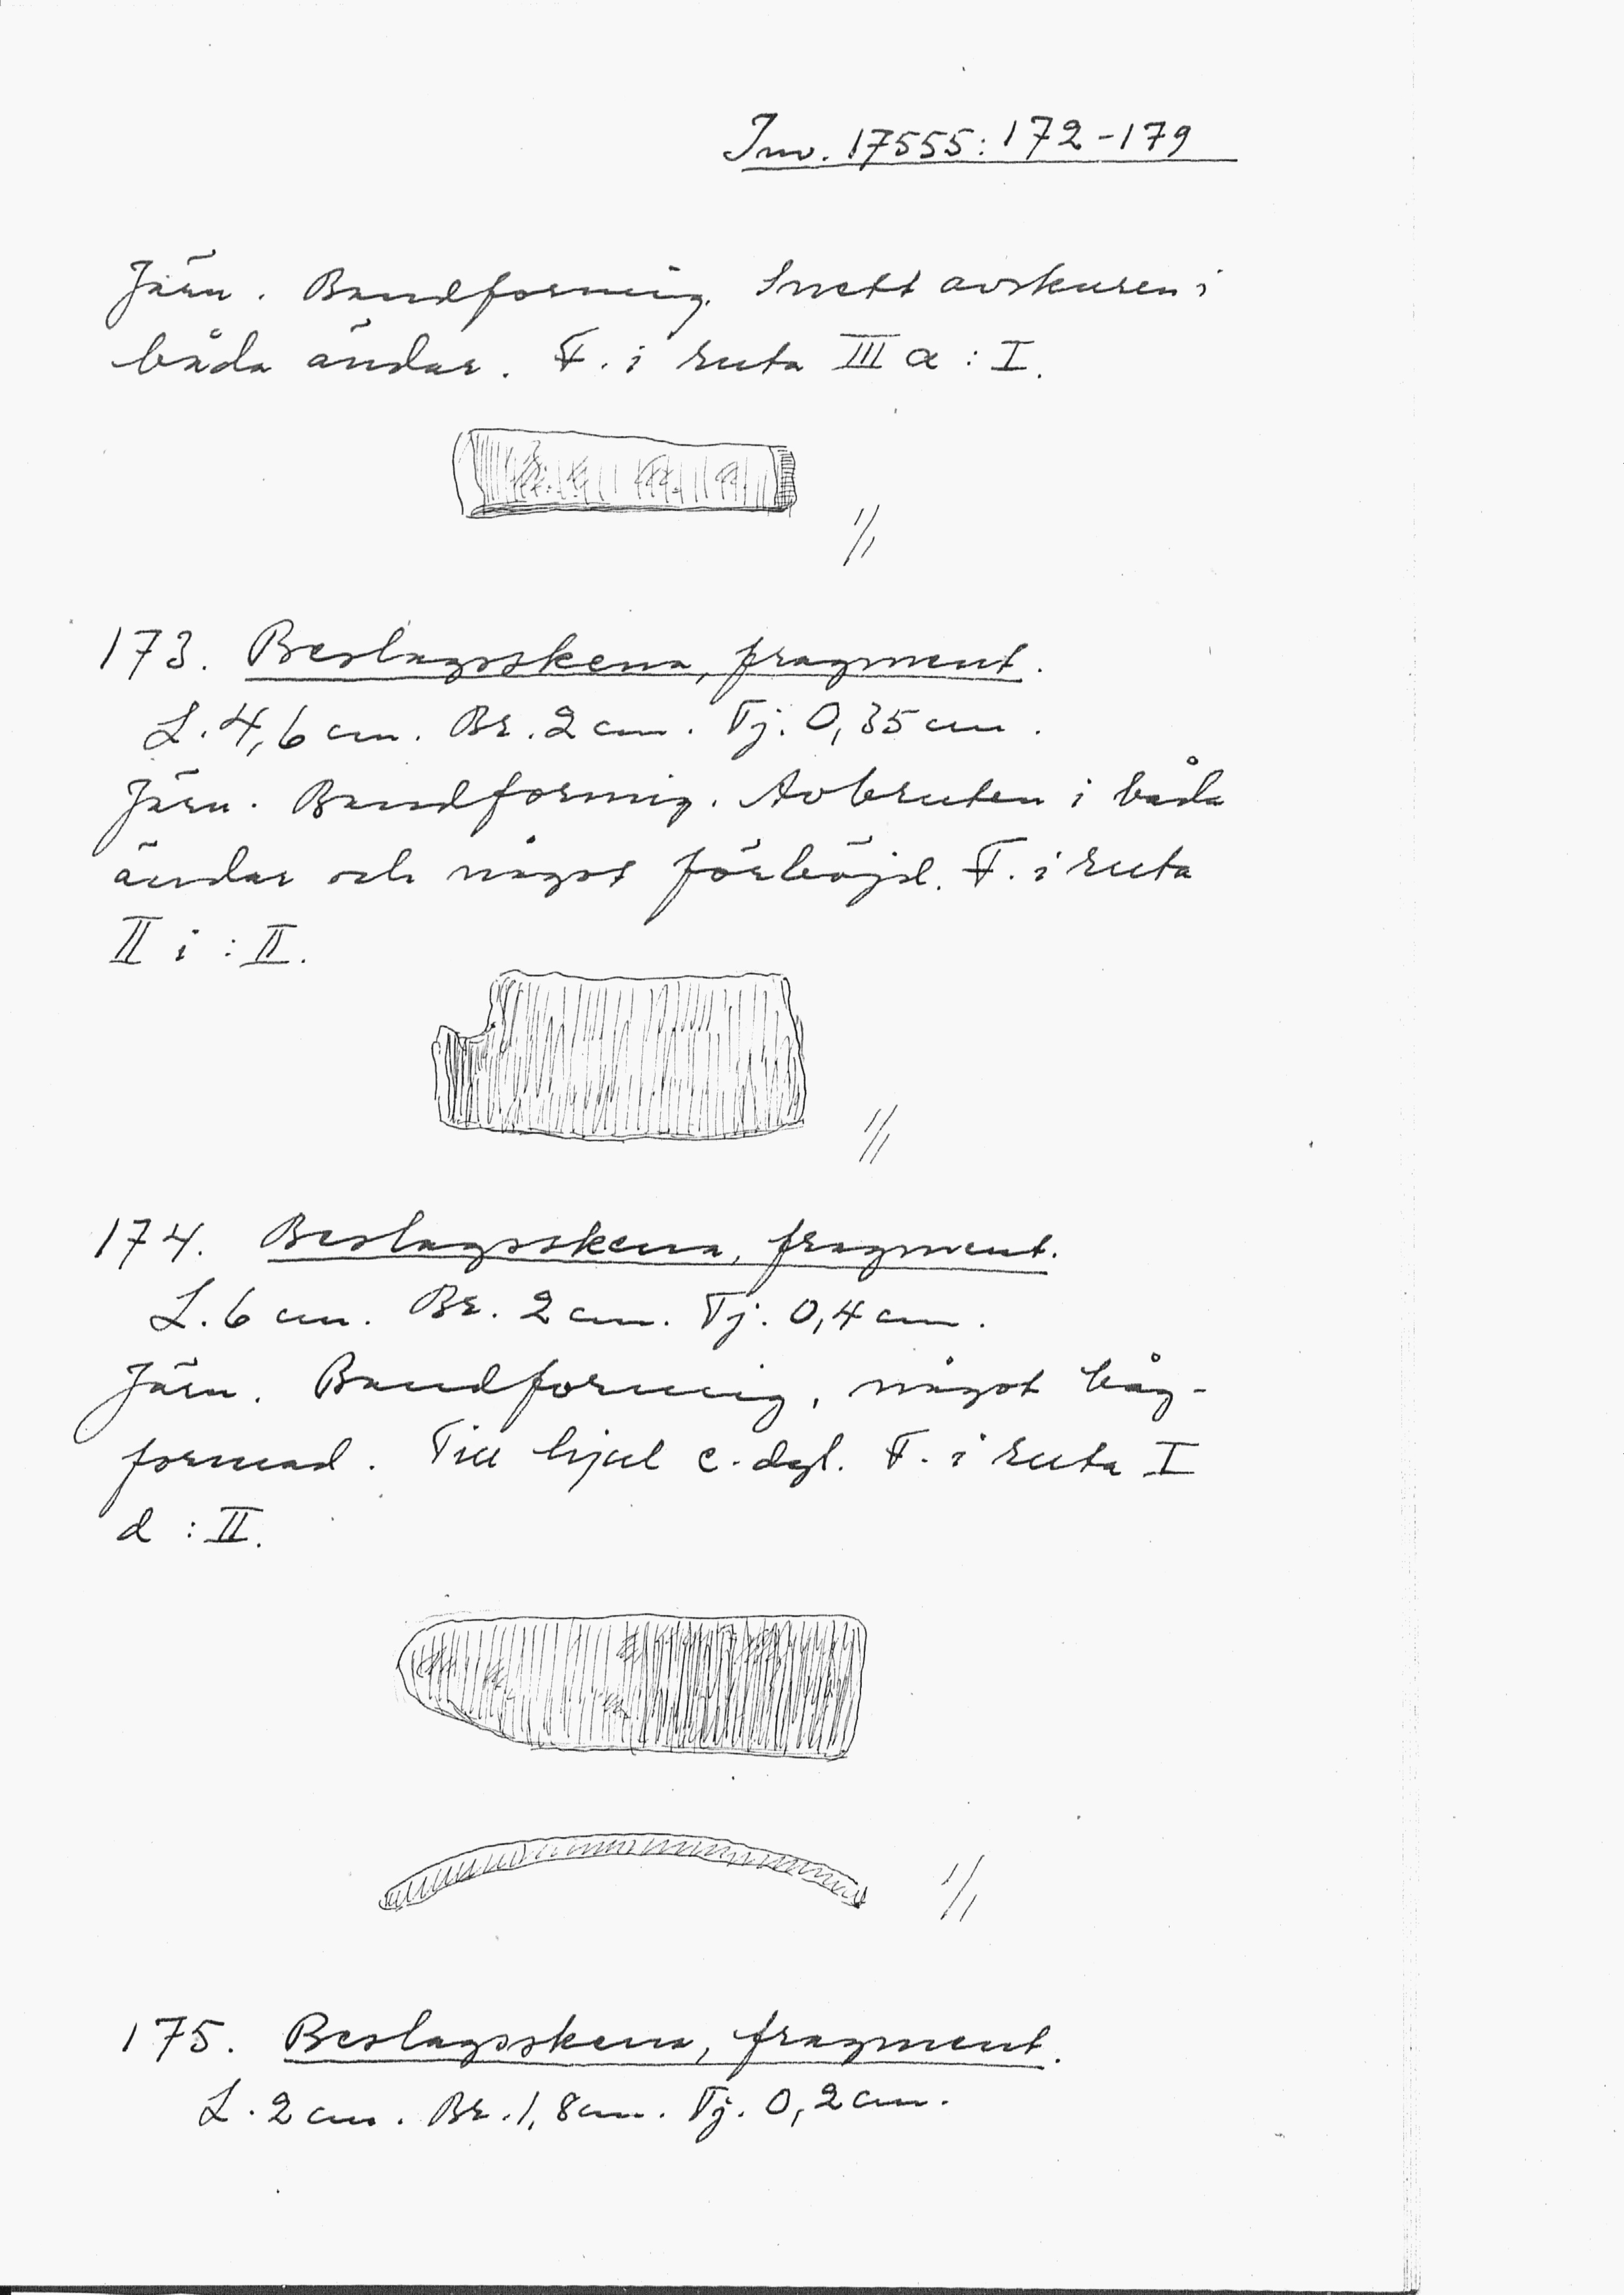 Inv. 17555:172-179
Järn. Bandformig. Snett avskuren i
båda ändar. F. i ruta III a : I.
1/1
173. Beslagsskena, fragment.
L. 4,6 cm. Br. 2 cm. Tj. 0,35 cm.
Järn. Bandformig. Avbruten i båda
ändar och något förböjd. F. i ruta
II i : II.
1/1
174. Beslagsskena, fragment.
L. 6 cm. Br. 2 cm. Tj. 0,4 cm.
Järn. Bandformig, något båg-
formad. Till hjul e. dyl. F. i ruta I
d : II.
1/1
175. Beslagsskena, fragment.
L. 2 cm. Br. 1,8 cm. Tj. 0,2 cm.